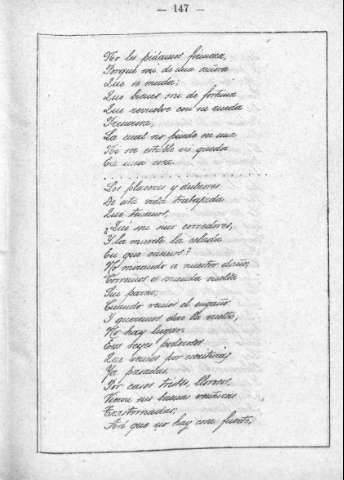 — 147 —
No les pidamos firmeza,
Porque son de una señora
Que se muda;
Que bienes son de fortuna
Que revuelve con su rueda
Presurosa,
La cual no puede ser una
Ni ser estable ni queda
En una cosa.
Los placeres y dulzores
De esta vida trabajada
Que tenemos,
¿Qué son sino corredores,
Y la muerte la celada
En que caemos?
No mirando a nuestro daño,
Corremos a rienda suelta
Sin parar;
Cuando vemos el engaño
Y queremos dar la vuelta,
No hay lugar.
Esos reyes poderosos
Que vemos por escrituras
Ya pasadas,
Por casos tristes, llorosos,
Fueron sus buenas venturas
Trastornadas;
Así que no hay cosa fuerte;